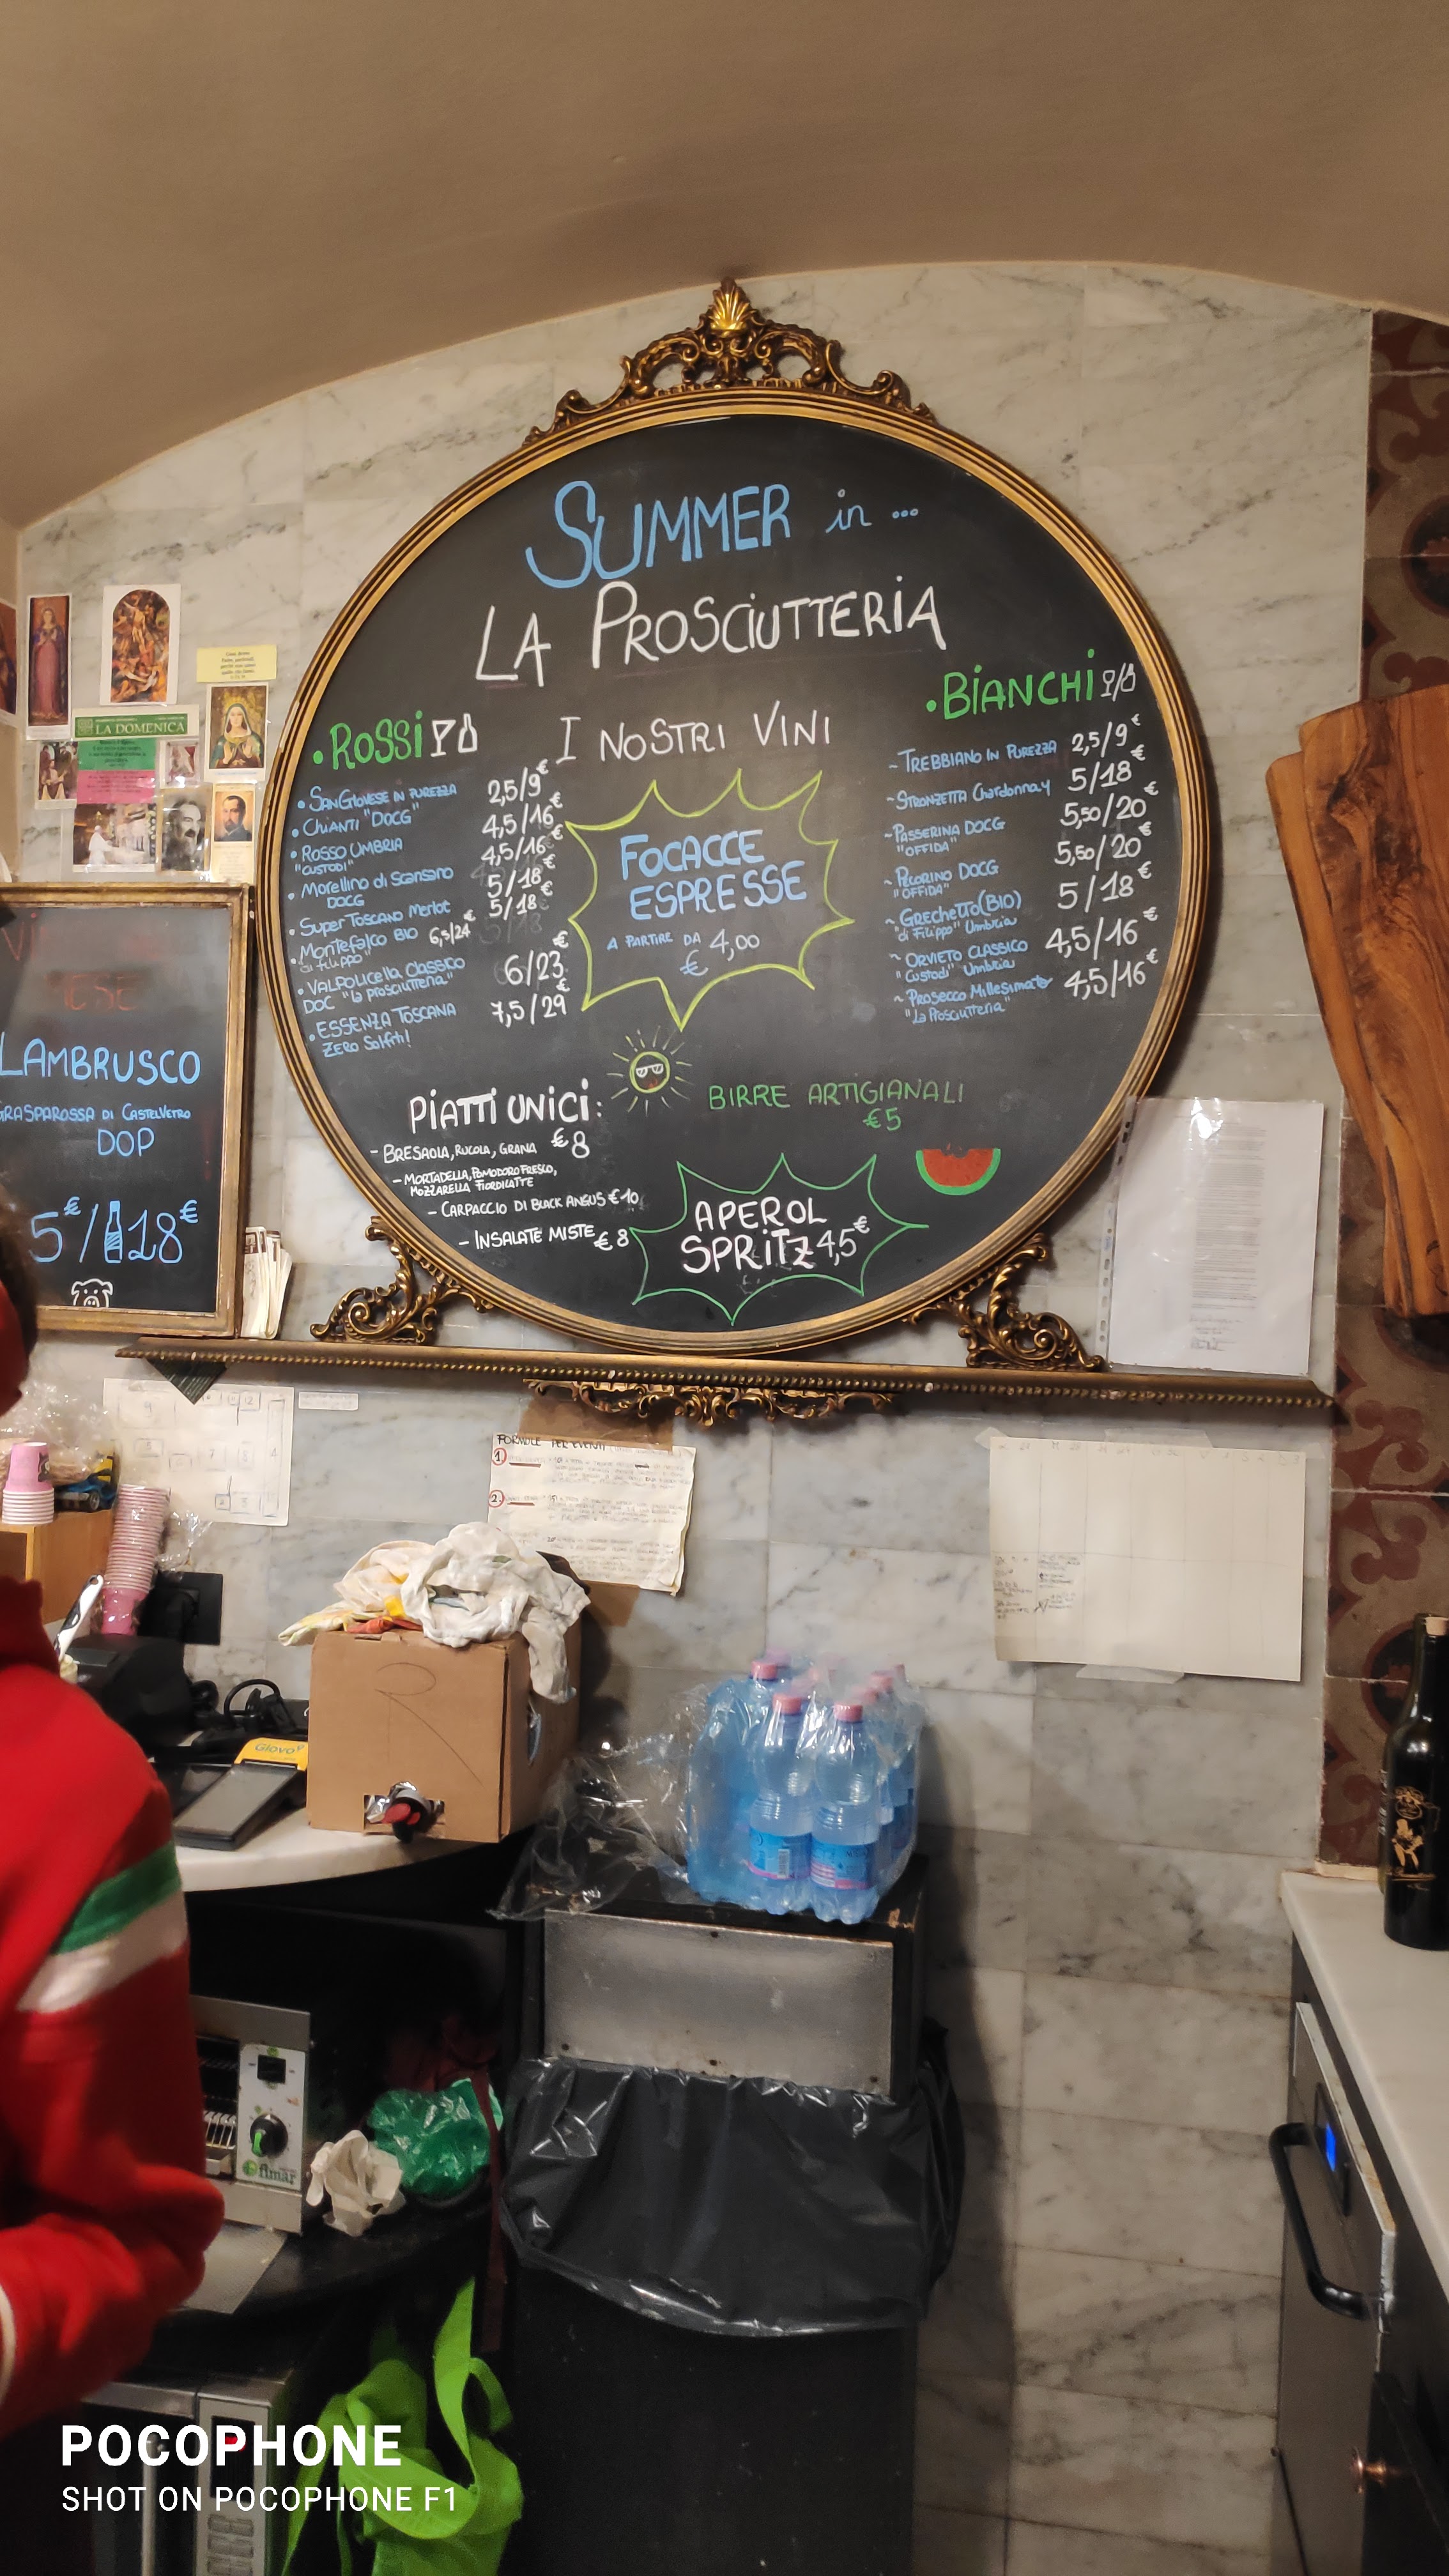 SUMMER in ...
LA PROSCIUTTERIA
I NOSTRI VINI
• ROSSI
• SANGIOVESE IN PUREZZA 2,5/9€
• CHIANTI "DOCG" 4,5/16€
• ROSSO UMBRIA 4,5/16€
"CUSTODI"
• Morellino di Scansano 5/18€
DOCG
• Super Toscano Merlot 5/18€
• Montefalco BIO 6,5/24€
"di Filippo"
• VALPOLICELLA CLASSICO 6/23€
DOC "la prosciutteria"
• ESSENZA TOSCANA 7,5/29€
ZERO Solfiti!
• BIANCHI
~ TREBBIANO IN PUREZZA 2,5/9€
~ STRONZETTA Chardonnay 5/18€
~ PASSERINA DOCG 5,50/20€
"OFFIDA"
~ PECORINO DOCG 5,50/20€
"OFFIDA"
~ GRECHETTO (BIO) 5/18€
"di Filippo" Umbria
~ ORVIETO CLASSICO 4,5/16€
"Custodi" Umbria
~ PROSECCO Millesimato 4,5/16€
"La Prosciutteria"
FOCACCE
ESPRESSE
A PARTIRE DA 4,00
€
PIATTI UNICI:
- BRESAOLA, RUCOLA, GRANA €8
- MORTADELLA, POMODORO FRESCO,
MOZZARELLA FIORDILATTE
- CARPACCIO DI BLACK ANGUS €10
- INSALATE MISTE €8
BIRRE ARTIGIANALI
€5
APEROL
SPRITZ 4,5€
LA DOMENICA
LAMBRUSCO
GRASPAROSSA DI CASTELVETRO
DOP
5€/18€
FORMULE PER EVENTI
1)
2)
R
Glovo
fimar
POCOPHONE
SHOT ON POCOPHONE F1